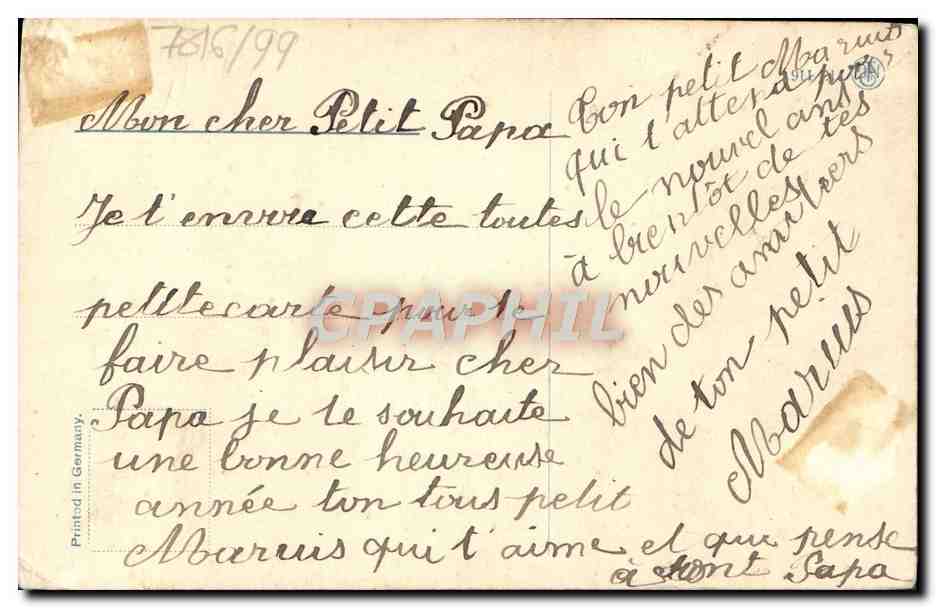 7816/99
Mon cher Petit Papa
Je t'envoie cette toutes
petite carte pour te
faire plaisir cher
Papa je te souhaite
une bonne heureuse
année ton tous petit
Marius qui t'aime et que pense
à sont Papa
Ton petit Marius
qui t'attend pour
le nouvel ans
à bientôt de tes
nouvelles
bien des
de ton petit
Marius
Printed in Germany.
CPAPHIL